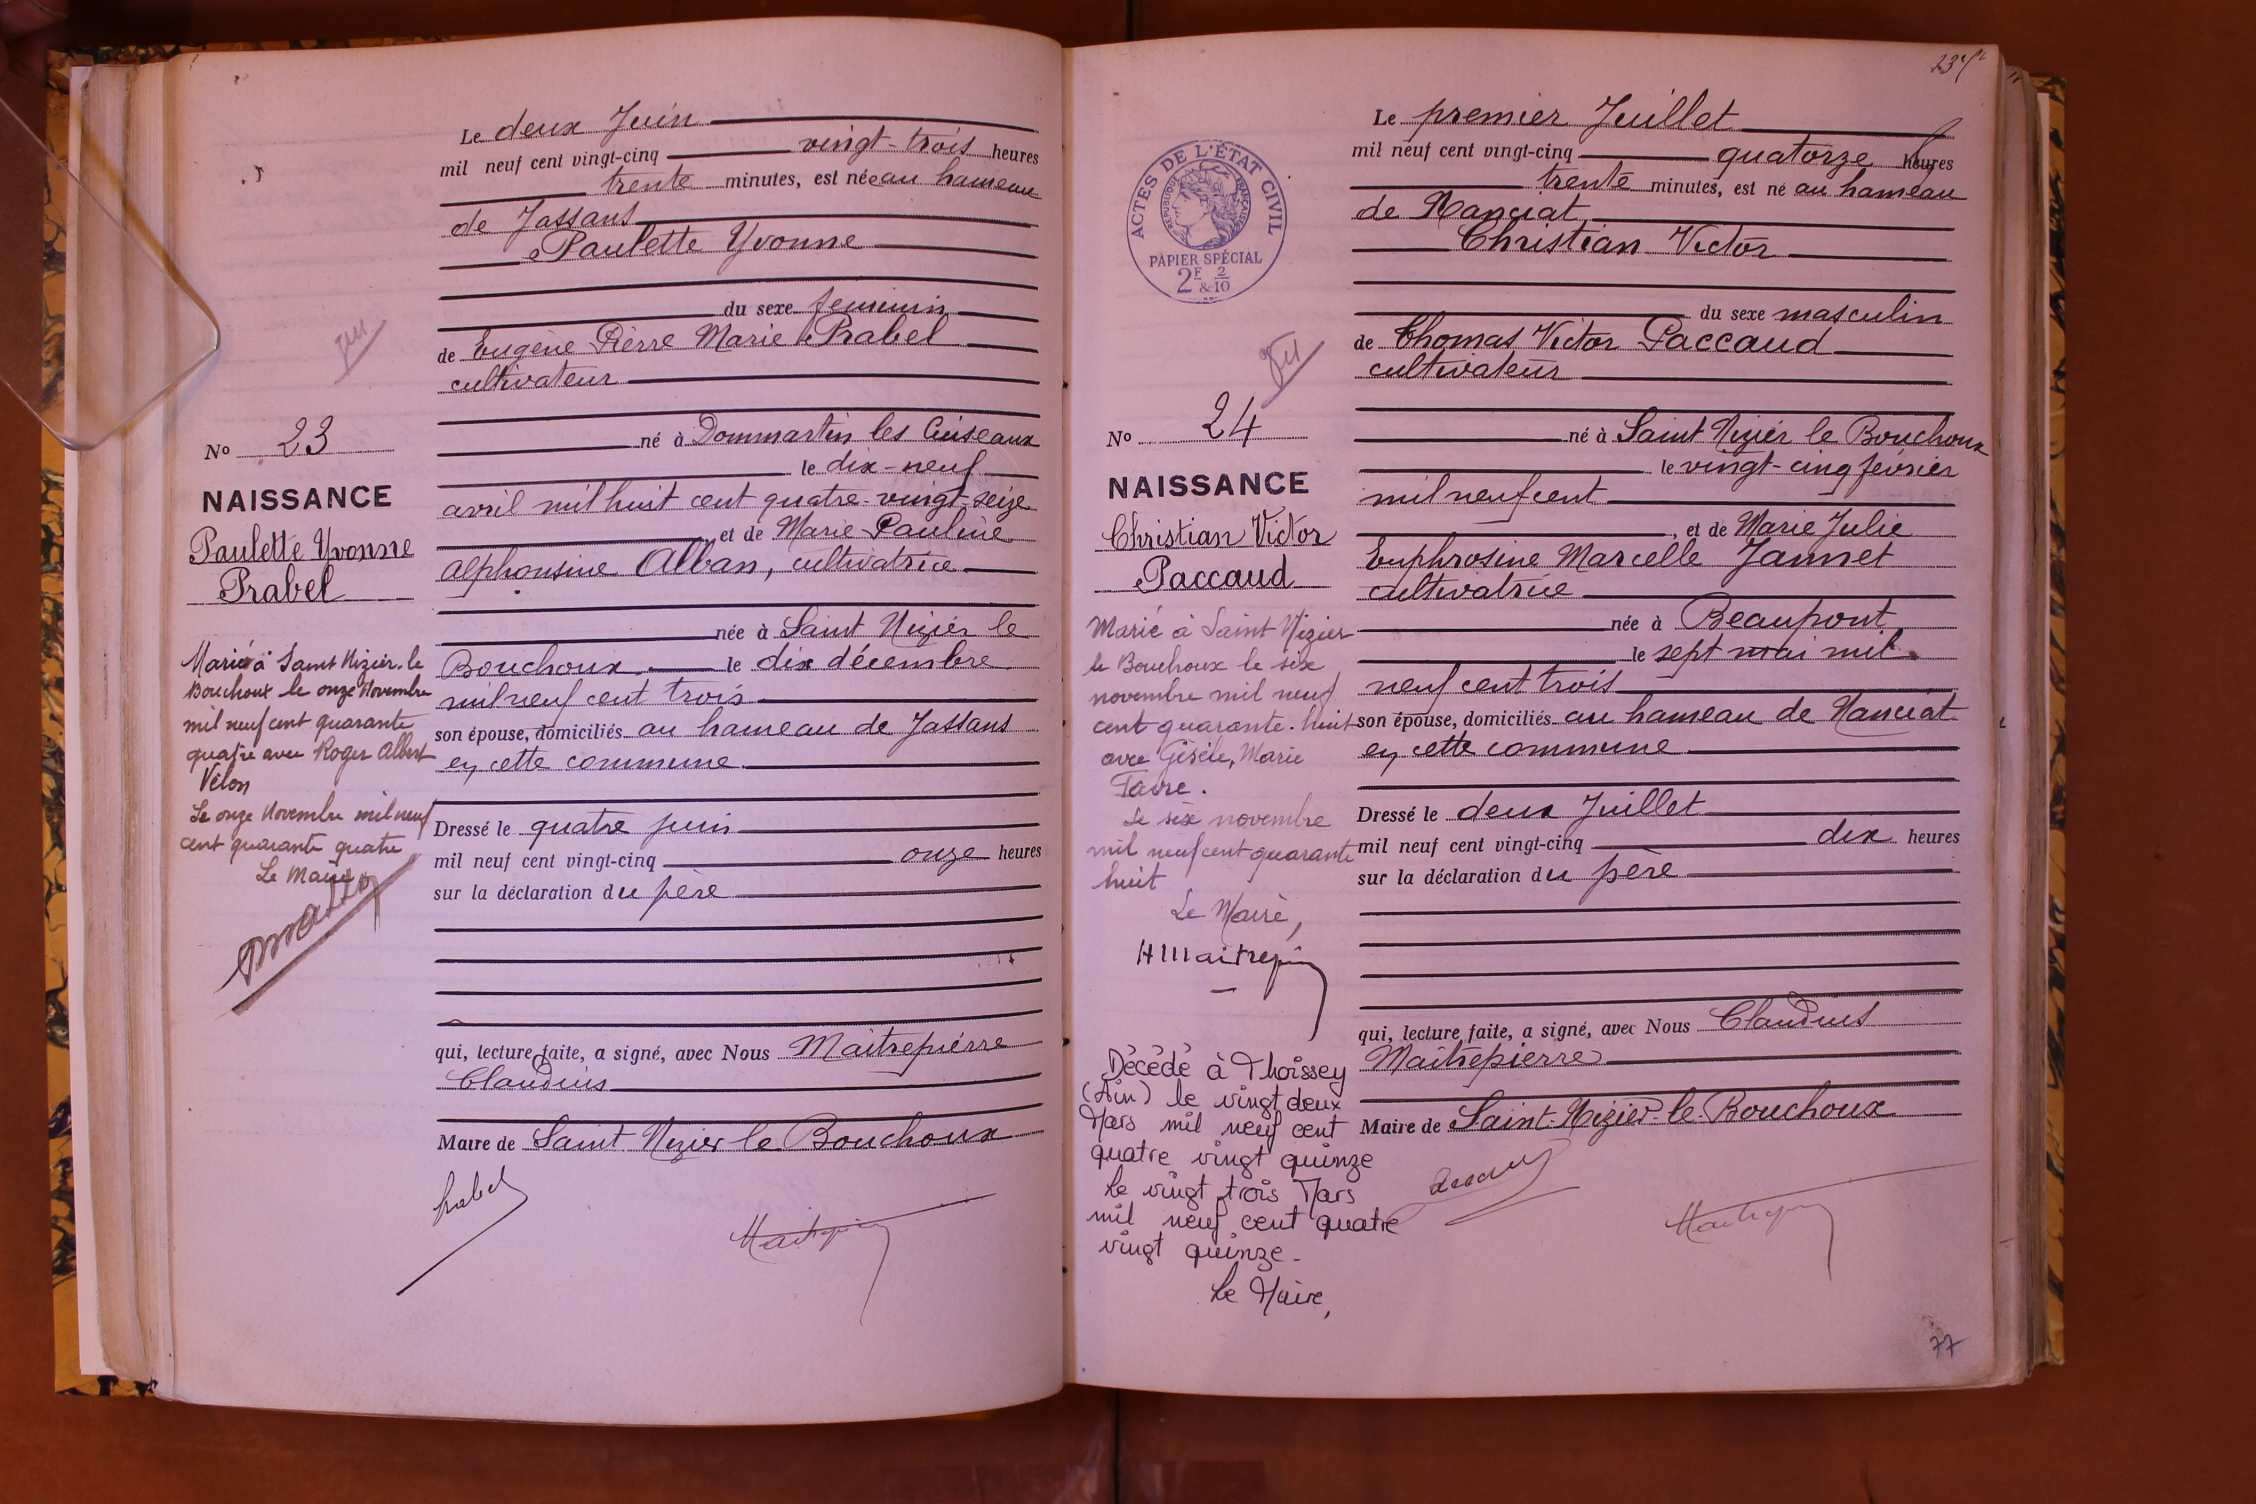 Le deux Juin
mil neuf cent vingt-cinq vingt-trois heures
trente minutes, est née au hameau
de Jassans
Paulette Yvonne
du sexe feminin
de Eugène Pierre Marie Prabel
cultivateur
né à Dommartin les Cuiseaux
le dix-neuf
avril mil huit cent quatre-vingt-seize
et de Marie Pauline
Alphonsine Alban, cultivatrice
née à Saint Nizier le
Bouchoux le dix décembre
mil neuf cent trois
son épouse, domiciliés au hameau de Jassans
en cette commune
Dressé le quatre juin
mil neuf cent vingt-cinq onze heures
sur la déclaration du père
qui, lecture faite, a signé, avec Nous Maitrepierre
Claudius
Maire de Saint Nizier le Bouchoux
Prabel
No 23
NAISSANCE
Paulette Yvonne
Prabel
Mariée à Saint Nizier-le
Bouchoux le onze Novembre
mil neuf cent quarante
quatre avec Roger Albert
Vélon
Le onze Novembre mil neuf
cent quarante quatre
Le Maire
Le premier Juillet
mil neuf cent vingt-cinq quatorze heures
trente minutes, est né au hameau
de Nanciat
Christian Victor
du sexe masculin
de Thomas Victor Paccaud
cultivateur
né à Saint Nizier le Bouchoux
le vingt-cinq février
mil neuf cent
et de Marie Julie
Euphrosine Marcelle Jannet
cultivatrice
née à Beaupont
le sept mai mil
neuf cent trois
son épouse, domiciliés au hameau de Nanciat
en cette commune
Dressé le deux Juillet
mil neuf cent vingt-cinq dix heures
sur la déclaration du père
qui, lecture faite, a signé, avec Nous Claudius
Maitrepierre
Maire de Saint-Nizier-le-Bouchoux
ACTES DE L'ÉTAT CIVIL
RÉPUBLIQUE FRANÇAISE
PAPIER SPÉCIAL
2F & 2/10
No 24
NAISSANCE
Christian Victor
Paccaud
Marié à Saint Nizier
le Bouchoux le six
novembre mil neuf
cent quarante-huit
avec Gisèle, Marie
Favre.
Le six novembre
mil neuf cent quarante
huit
Le Maire,
HMaitrepierre
Décédé à Thoissey
(Ain) le vingt deux
Mars mil neuf cent
quatre vingt quinze
Le vingt trois Mars
mil neuf cent quatre
vingt quinze.
Le Maire,
77